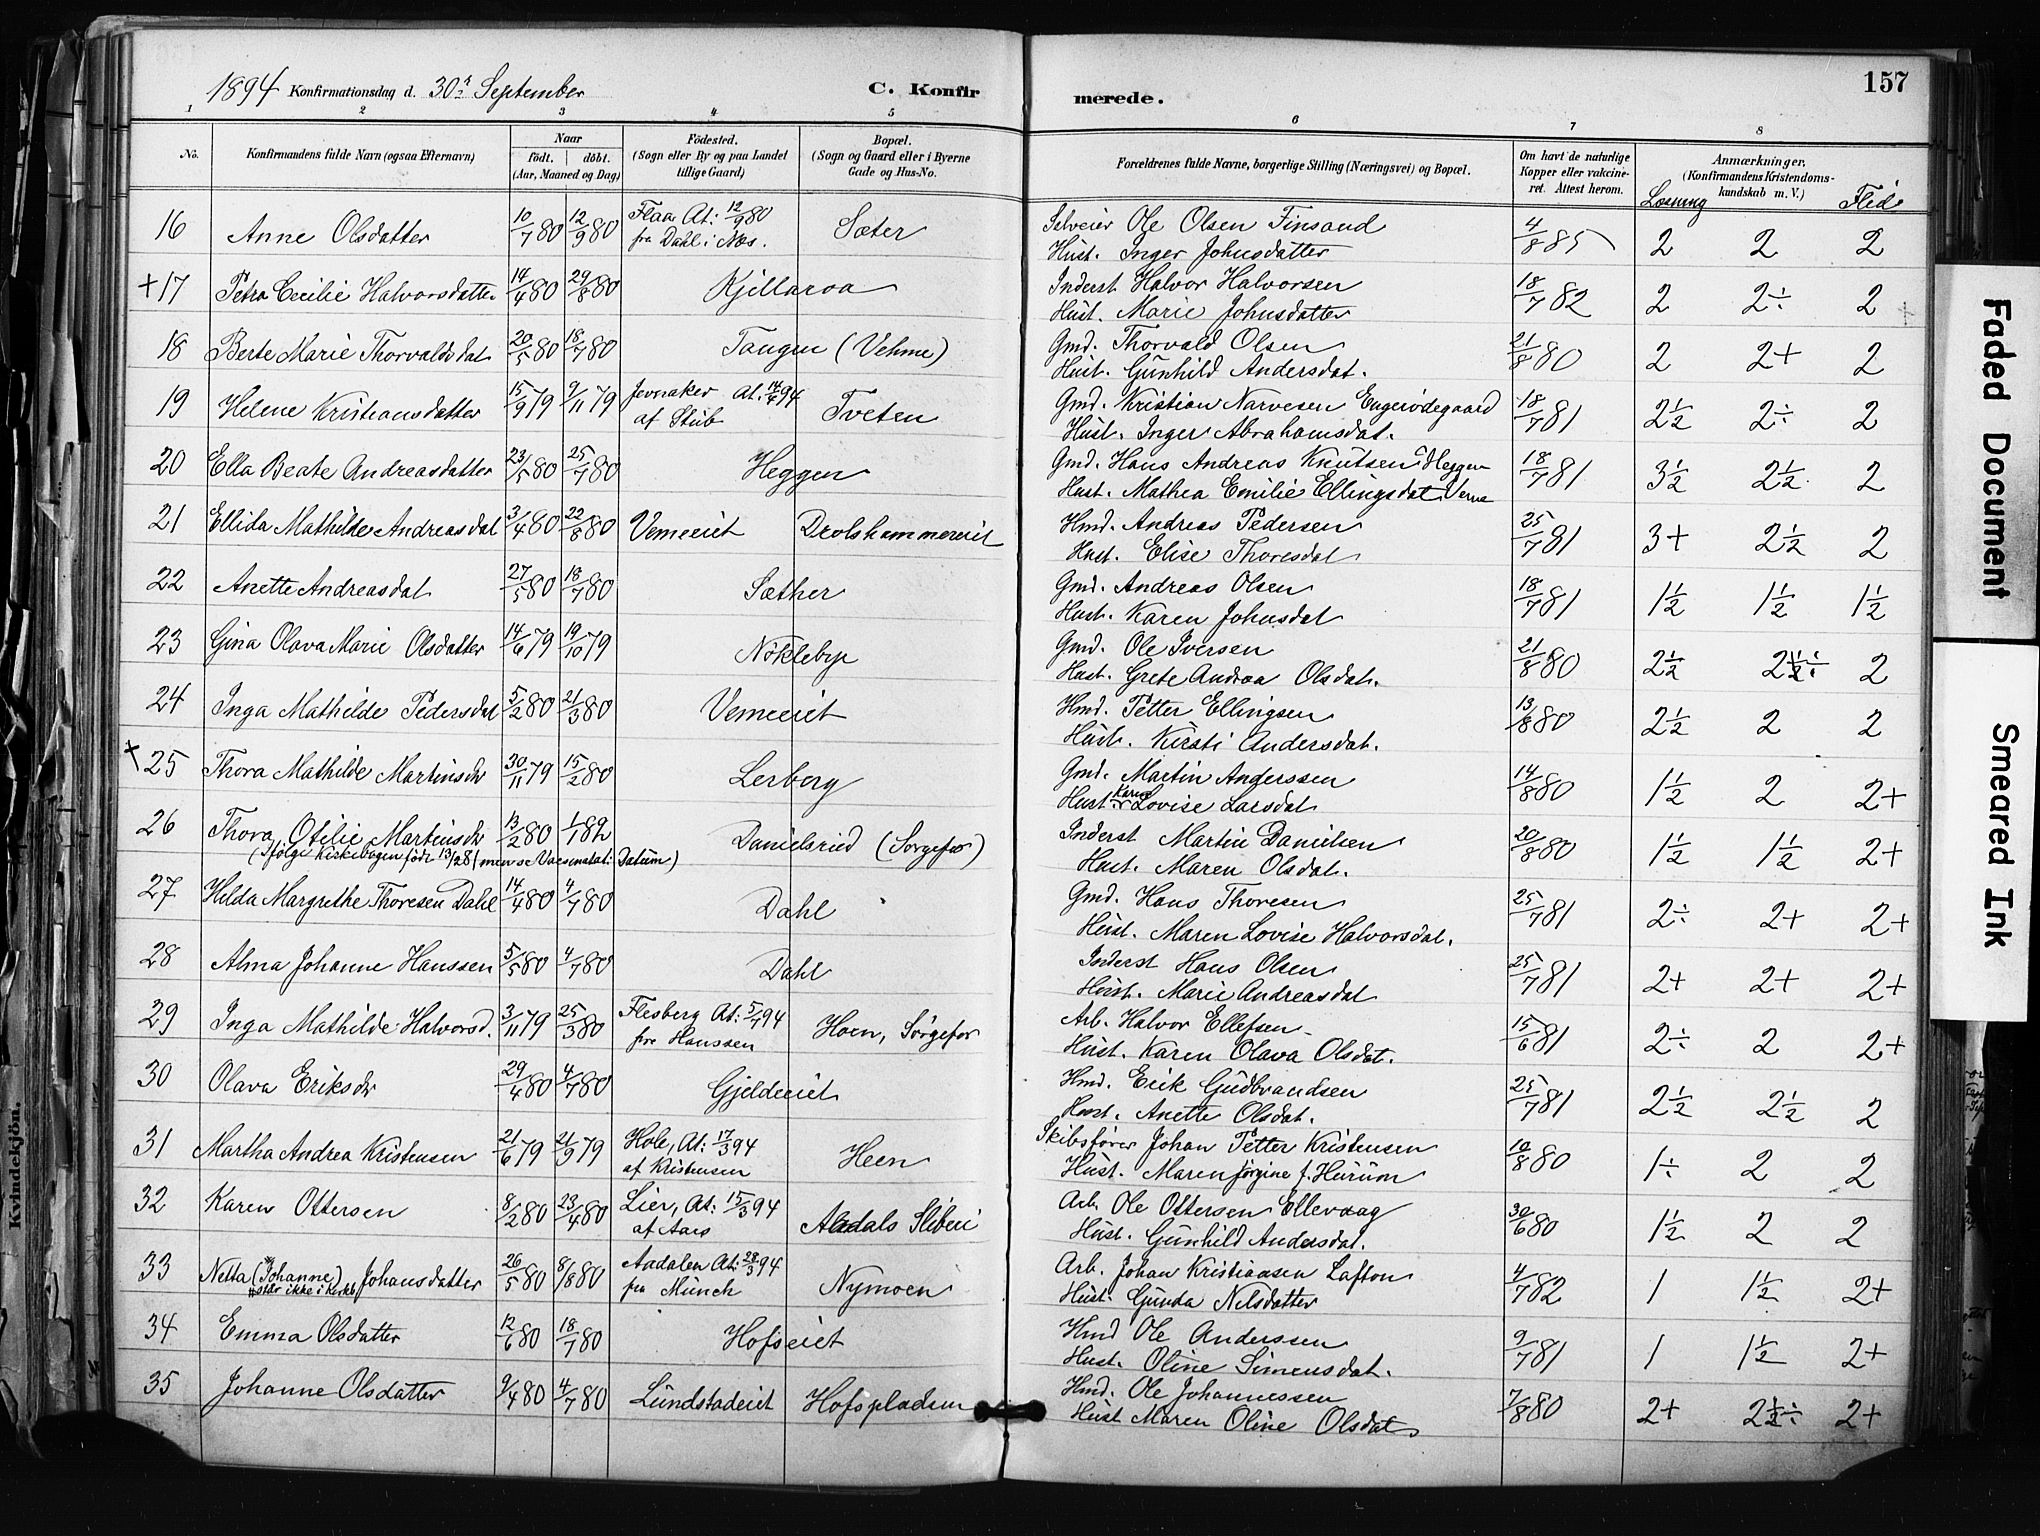 1894 Konfirmationsdag d. 30. September C. Konfirmerede. 157
1 2 3 4 5 6 7 8
No. Konfirmandens fulde Navn (ogsaa Efternavn) Naar födt. döbt. (Aar, Maaned og Dag) Födested. (Sogn eller By og paa Landet tillige Gaard) Bopæl. (Sogn og Gaard eller i Byerne Gade og Hus-No. Forældrenes fulde Navne, borgerlige Stilling (Næringsvei) og Bopæl. Om havt de naturlige Kopper eller vakcineret. Attest herom. Anmærkninger. (Konfirmandens Kristendomskundskab m. V.) Læsning Flid
16 Anne Olsdatter 10/7 80 12/9 80 Flaa At: 12/9 80 fra Dahl i Næs. Sæter Selveier Ole Olsen Finsand 4/8 85 2 2 2
Hust. Inger Johnsdatter
+17 Petra Cecilie Halvorsdatter 14/4 80 29/8 80 Kjillaroa Inderst Halvor Halvorsen 18/7 82 2 2÷ 2
Hust. Marie Johnsdatter
18 Berte Marie Thorvaldsdat 20/5 80 18/7 80 Tangen (Vehme) Gmd. Thorvald Olsen 21/8 80 2 2+ 2
Hust. Gunhild Andersdat.
19 Helene Kristiansdatter 15/9 79 9/11 79 Jevnaker At: 14/4 94 af Stub Tveten Gmd. Kristian Narvesen Engerødegaard 18/7 81 2½ 2÷ 2
Hust. Inger Abrahamsdat.
20 Ella Beate Andreasdatter 23/5 80 25/7 80 Heggen Gmd. Hans Andreas Knutsen Heggen 18/7 81 3½ 2½ 2
Hust. Mathea Emilie Ellingsdat
21 Ellida Mathilde Andreasdat 3/4 80 22/8 80 Vemeeiet Drolshammereiet Hmd. Andreas Pedersen 25/7 81 3+ 2½ 2
Hust. Elise Thoresdat
22 Anette Andreasdat 27/5 80 18/7 80 Sæther Gmd. Andreas Olsen 18/7 81 1½ 1½ 1½
Hust. Karen Johnsdat
23 Gina Olava Marie Olsdatter 14/6 79 19/10 79 Nökleby Gmd. Ole Iversen 21/8 80 2½ 2½÷ 2
Hust. Grete Andrea Olsdat.
24 Inga Mathilde Pedersdat 5/2 80 21/3 80 Vemeeiet Hmd. Petter Ellingsen 13/8 80 2½ 2 2
Hust. Kirsti Andersdat.
+25 Thora Mathilde Martinsdr 30/11 79 15/2 80 Lerberg Gmd. Martin Anderssen 14/8 80 1½ 2 2+
Hust. Karen Lovise Larsdat
26 Thora Otilie Martinsdr 13/2 80 1/1 82 Danielsrud (Sørgefos) Inderst Martin Danielsen 20/8 80 1½ 1½ 2+
(Ifølge Kirkebogen född 13/2 81 men se Vaccinatat: Datum) Hust. Maren Olsdat.
27 Hilda Margrethe Thoresen Dahl 14/4 80 4/7 80 Dahl Gmd. Hans Thoresen 25/7 81 2÷ 2+ 2+
Hust. Maren Lovise Halvorsdat.
28 Alma Johanne Hanssen 5/5 80 4/7 80 Dahl Inderst Hans Olsen 25/7 81 2+ 2+ 2+
Hust. Marie Andreasdat
29 Inga Mathilde Halvorsd. 3/11 79 25/3 80 Flesberg At: 5/7 94 fra Hanssen Hoen, Sörgefos Arb. Halvor Ellefsen 15/6 81 2÷ 2 2+
Hust. Karen Olava Olsdat.
30 Olava Eriksdr 29/4 80 4/7 80 Gjeldeeiet Hmd. Erik Gudbrandsen 25/7 81 2½ 2½ 2
Hust. Anette Olsdat.
31 Martha Andrea Kristensen 21/6 79 21/9 79 Hole, At: 17/3 94 af Kristensen Heen Skibsfører Johan Petter Kristensen 10/8 80 1÷ 2 2
Hust. Maren Jørgine f. Heirum
32 Karen Ottersen 8/2 80 23/4 80 Lier, At: 15/3 94 af Aars Aadals Sliberi Arb. Ole Ottersen Ellevaag 30/6 80 1½ 2 2
Hust. Gunhild Andersdat.
33 Netta (Johanne) Johansdatter 26/5 80 8/8 80 Aadalen At: 28/3 94 fra Münch Nymoen Arb. Johan Kristiansen Lafton 4/7 82 1 1½ 2+
staar ikke i Kirkb. Hust. Gunda Nilsdatter
34 Emma Olsdatter 12/6 80 18/7 80 Hofseiet Hmd Ole Anderssen 9/7 81 1 1½ 2+
Hust. Oline Simensdat.
35 Johanne Olsdatter 9/4 80 4/7 80 Lundstadeiet Hofspladsen Hmd. Ole Johannessen 7/8 80 2+ 2½÷ 2+
Hust Maren Oline Olsdat
Kvindekjön.
Faded Document
Smeared Ink